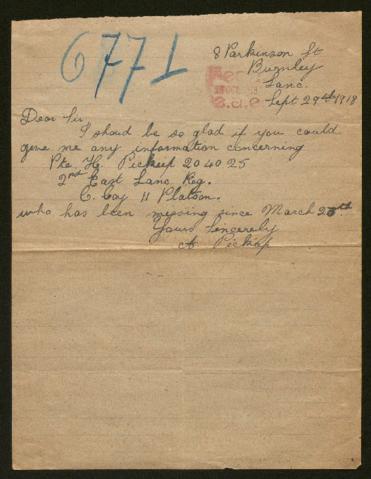 6771
8 Parkinson St
Burnley
Lanc.
Sept 29th 1918
Dear Sir
I shoud be so glad if you could
give me any information concerning
Pte H. Pickup 204025
2nd East Lanc Reg.
C. Coy 11 Platoon.
who has been missing since March
Yours Sincerely
A Pickup